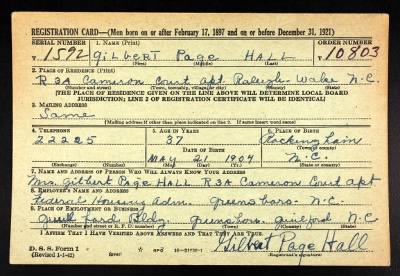 REGISTRATION CARD—(Men born on or after February 17, 1897 and on or before December 31, 1921)
SERIAL NUMBER 1. NAME (Print) ORDER NUMBER
V 1592 Gilbert Page HALL V 10803
(First) (Middle) (Last)
2. PLACE OF RESIDENCE (Print)
R 3A Cameron Court Apt Raleigh- Wake N.C.
(Number and street) (Town, township, village, or city) (County) (State)
[THE PLACE OF RESIDENCE GIVEN ON THE LINE ABOVE WILL DETERMINE LOCAL BOARD
JURISDICTION; LINE 2 OF REGISTRATION CERTIFICATE WILL BE IDENTICAL]
3. MAILING ADDRESS
Same
[Mailing address if other than place indicated on line 2. If same insert word same]
4. TELEPHONE 5. AGE IN YEARS 6. PLACE OF BIRTH
22225 37 Rockingham
DATE OF BIRTH (Town or county)
May 21 1904 N.C.
(Exchange) (Number) (Mo.) (Day) (Yr.) (State or country)
7. NAME AND ADDRESS OF PERSON WHO WILL ALWAYS KNOW YOUR ADDRESS
Mrs. Gilbert Page HALL R3A Cameron Court Apt
8. EMPLOYER'S NAME AND ADDRESS
Federal Housing Adm. Greensboro- N.C.
9. PLACE OF EMPLOYMENT OR BUSINESS
Bldg. Greensboro, Guilford N.C
(Number and street or R. F. D. number) (Town) (County) (State)
I AFFIRM THAT I HAVE VERIFIED ABOVE ANSWERS AND THAT THEY ARE TRUE.
D. S. S. Form 1
(Revised 1-1-42) GPO Gilbert Page Hall